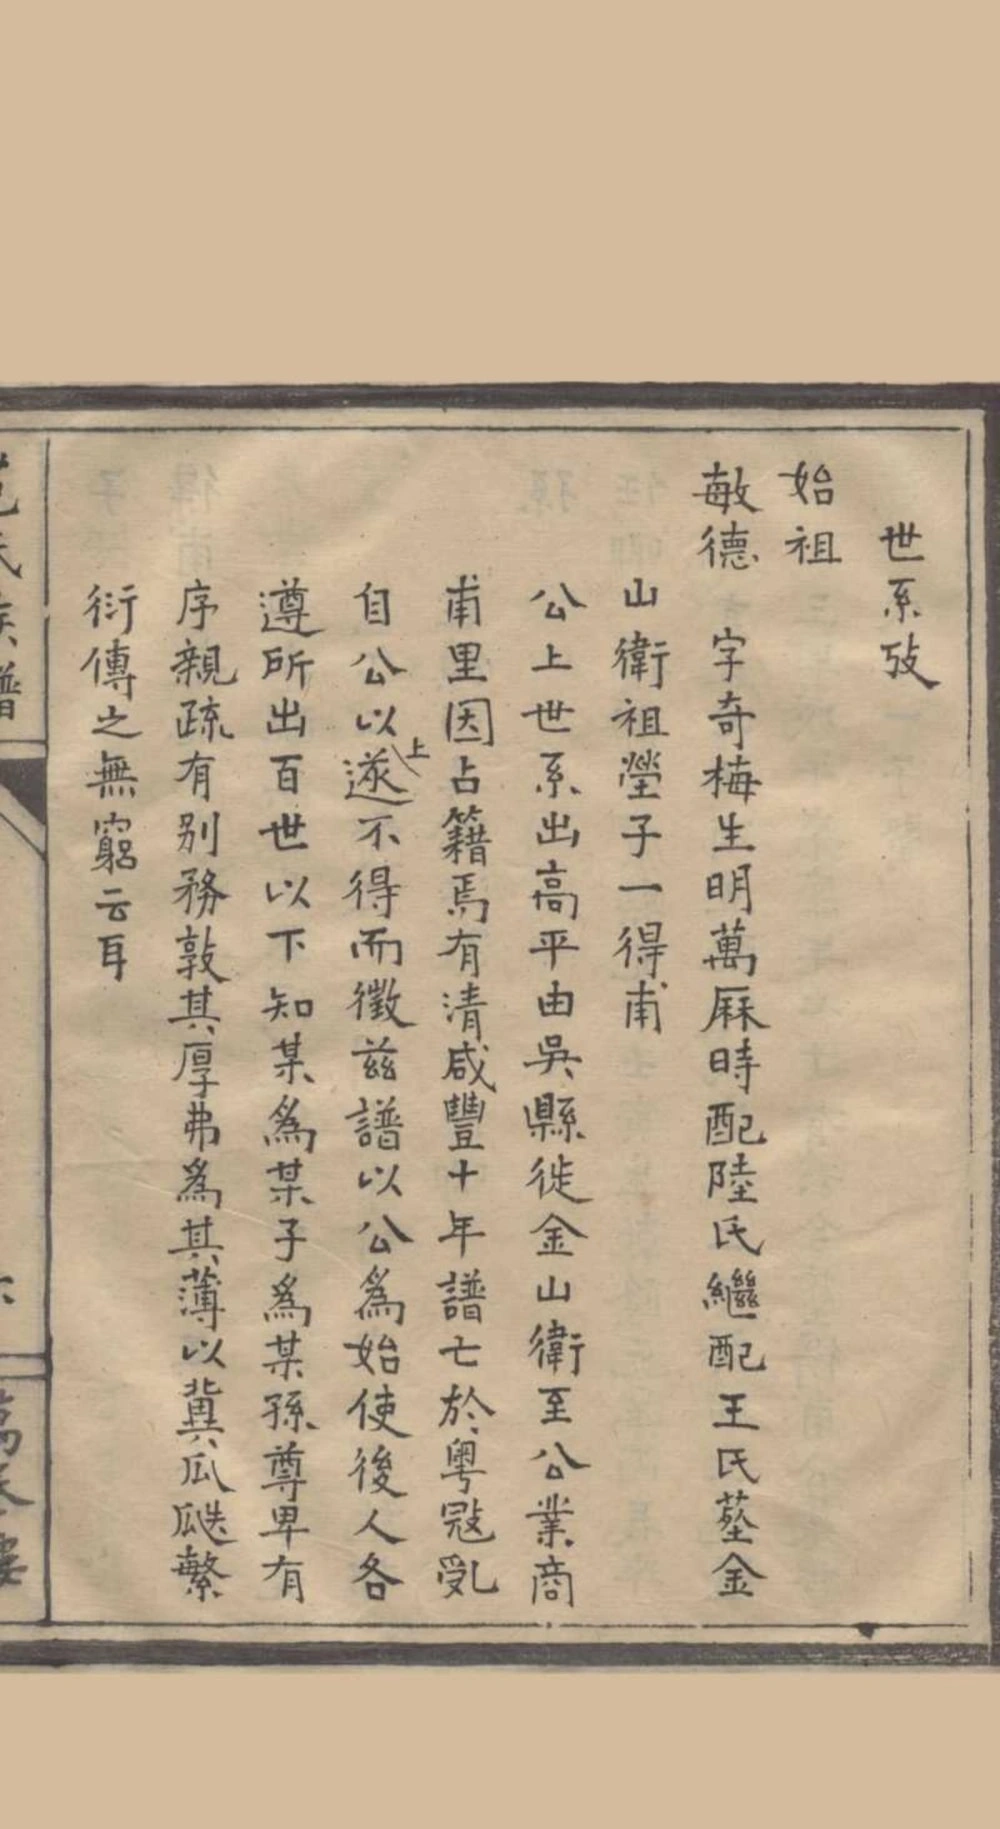 世系攷
始祖
敏德 字奇梅生明萬厤時配陸氏繼配王氏塟金
山衛祖塋子一得甫
公上世系出高平由吳縣徙金山衛至公業商
甫里因占籍焉有清咸豐十年譜七於粤冦乱
自公以上遂不得而徵兹譜以公爲始使後人各
遵所出百世以下知某爲某子爲某孫尊卑有
序親疏有别務敦其厚弗爲其薄以冀瓜瓞繁
衍傳之無窮云耳
氏族譜